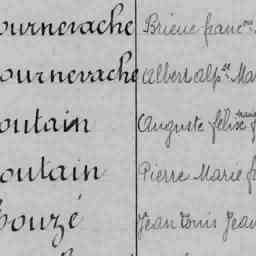 ournevache Brieuc franc
ournevache Albert alp.se Ma
outain Auguste félix
outain Pierre Marie f
ouzé Jean Louis Jean